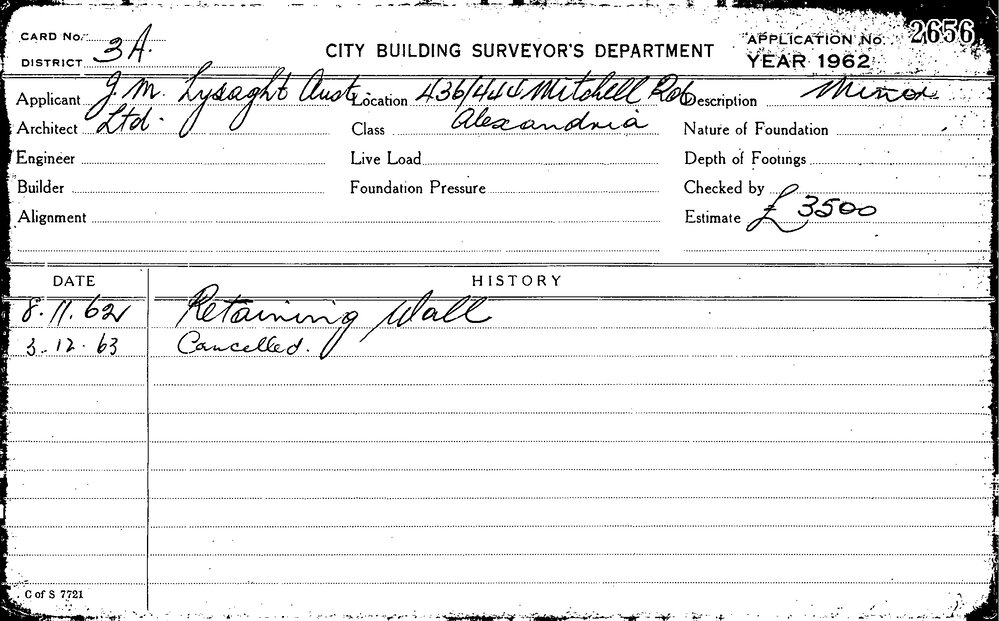 CARD No. 2656
DISTRICT 3A.
CITY BUILDING SURVEYOR'S DEPARTMENT
APPLICATION No.
YEAR 1962
Applicant J. M. Lysaght Aust. Location 436/444 Mitchell Rd Description Minor
Architect Ltd. Class Alexandria Nature of Foundation
Engineer Live Load Depth of Footings
Builder Foundation Pressure Checked by
Alignment Estimate £ 3500
DATE HISTORY
8.11.62 Retaining Wall
3.12.63 Cancelled.
C of S 7721